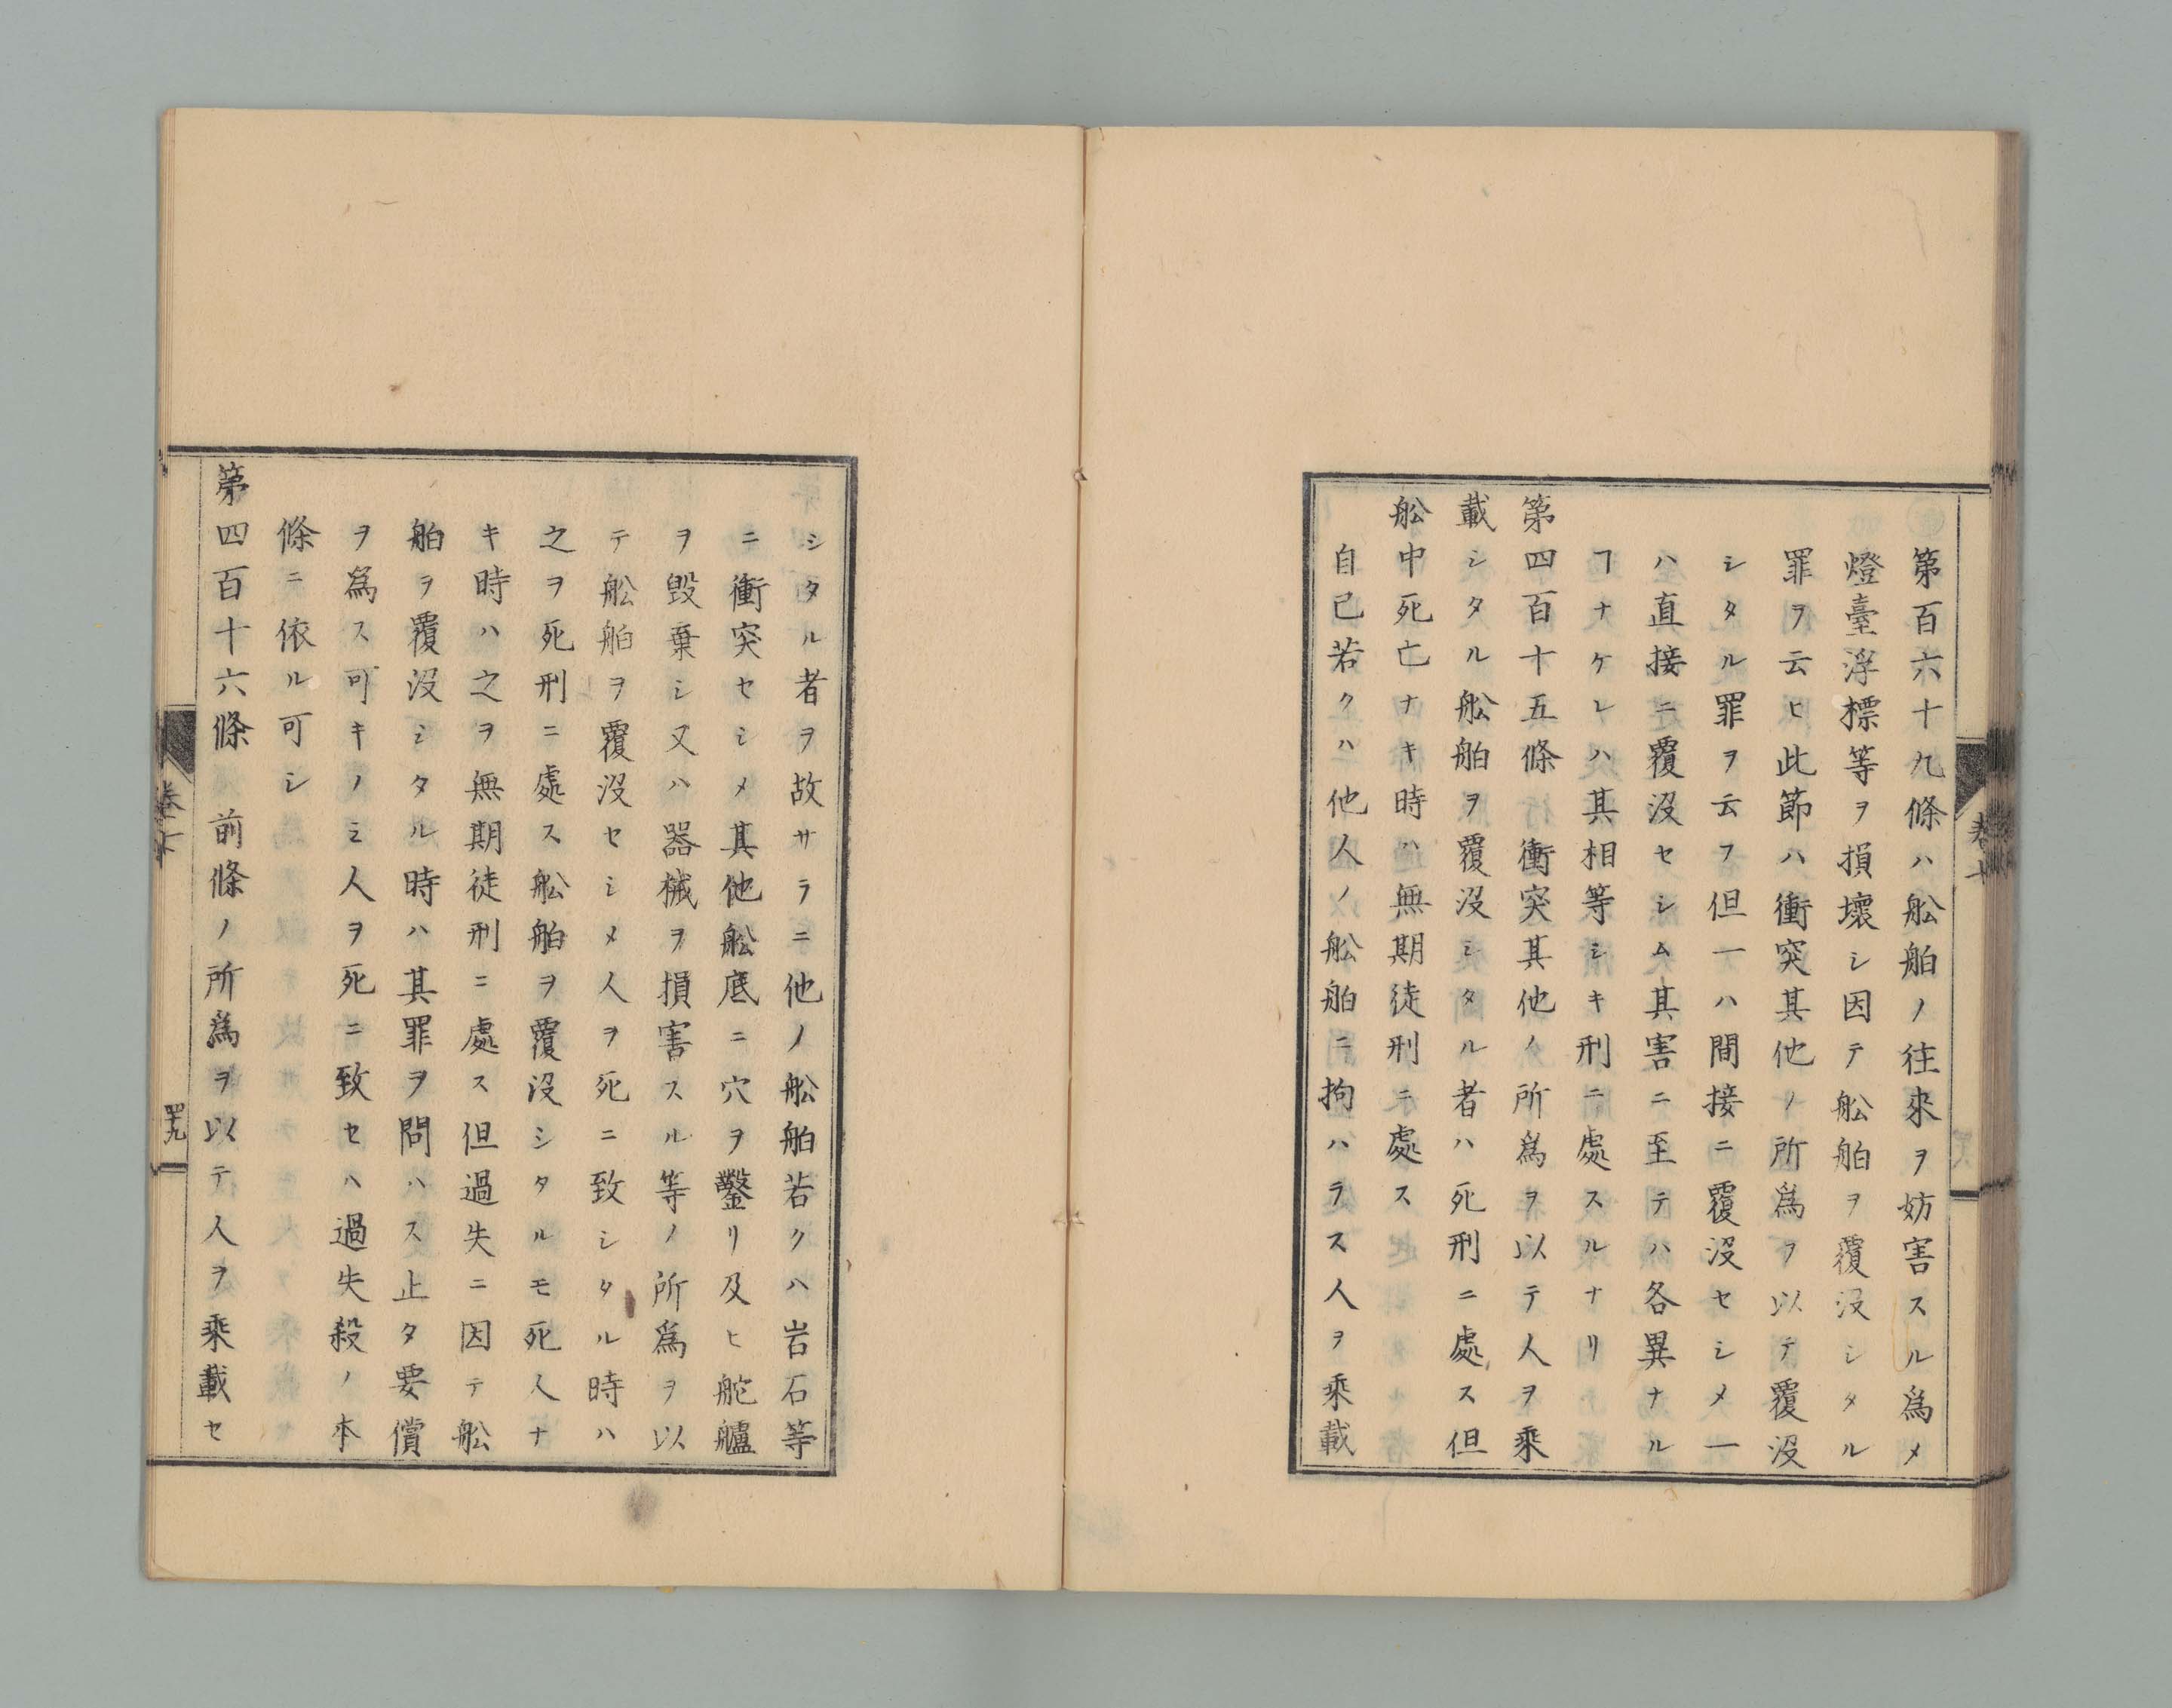 第百六十九條ハ舩舶ノ往來ヲ妨害スル爲メ
燈臺浮標等ヲ損壞シ因テ舩舶ヲ覆沒シタル
罪ヲ云ヒ此節ハ衝突其他ノ所爲ヲ以テ覆沒
シタル罪ヲ云フ但一ハ間接ニ覆沒セシメ一
ハ直接ニ覆沒セシム其害ニ至テハ各異ナル
ヿナケレハ其相等シキ刑ニ處スルナリ
第四百十五條 衝突其他ノ所爲ヲ以テ人ヲ乘
載シタル舩舶ヲ覆沒シタル者ハ死刑ニ處ス但
舩中死亡ナキ時ハ無期徒刑ニ處ス
自己若クハ他人ノ舩舶ニ拘ハラス人ヲ乘載
卷十
シタル者ヲ故サラニ他ノ舩舶若クハ岩石等
ニ衝突セシメ其他舩底ニ穴ヲ鑿リ及ヒ舵艫
ヲ毀棄シ又ハ器械ヲ損害スル等ノ所爲ヲ以
テ舩舶ヲ覆沒セシメ人ヲ死ニ致シタル時ハ
之ヲ死刑ニ處ス舩舶ヲ覆沒シタルモ死人ナ
キ時ハ之ヲ無期徒刑ニ處ス但過失ニ因テ舩
舶ヲ覆沒シタル時ハ其罪ヲ問ハス止タ要償
ヲ爲ス可キノミ人ヲ死ニ致セハ過失殺ノ本
條ニ依ル可シ
第四百十六條 前條ノ所爲ヲ以テ人ヲ乘載セ
卷十
四十九